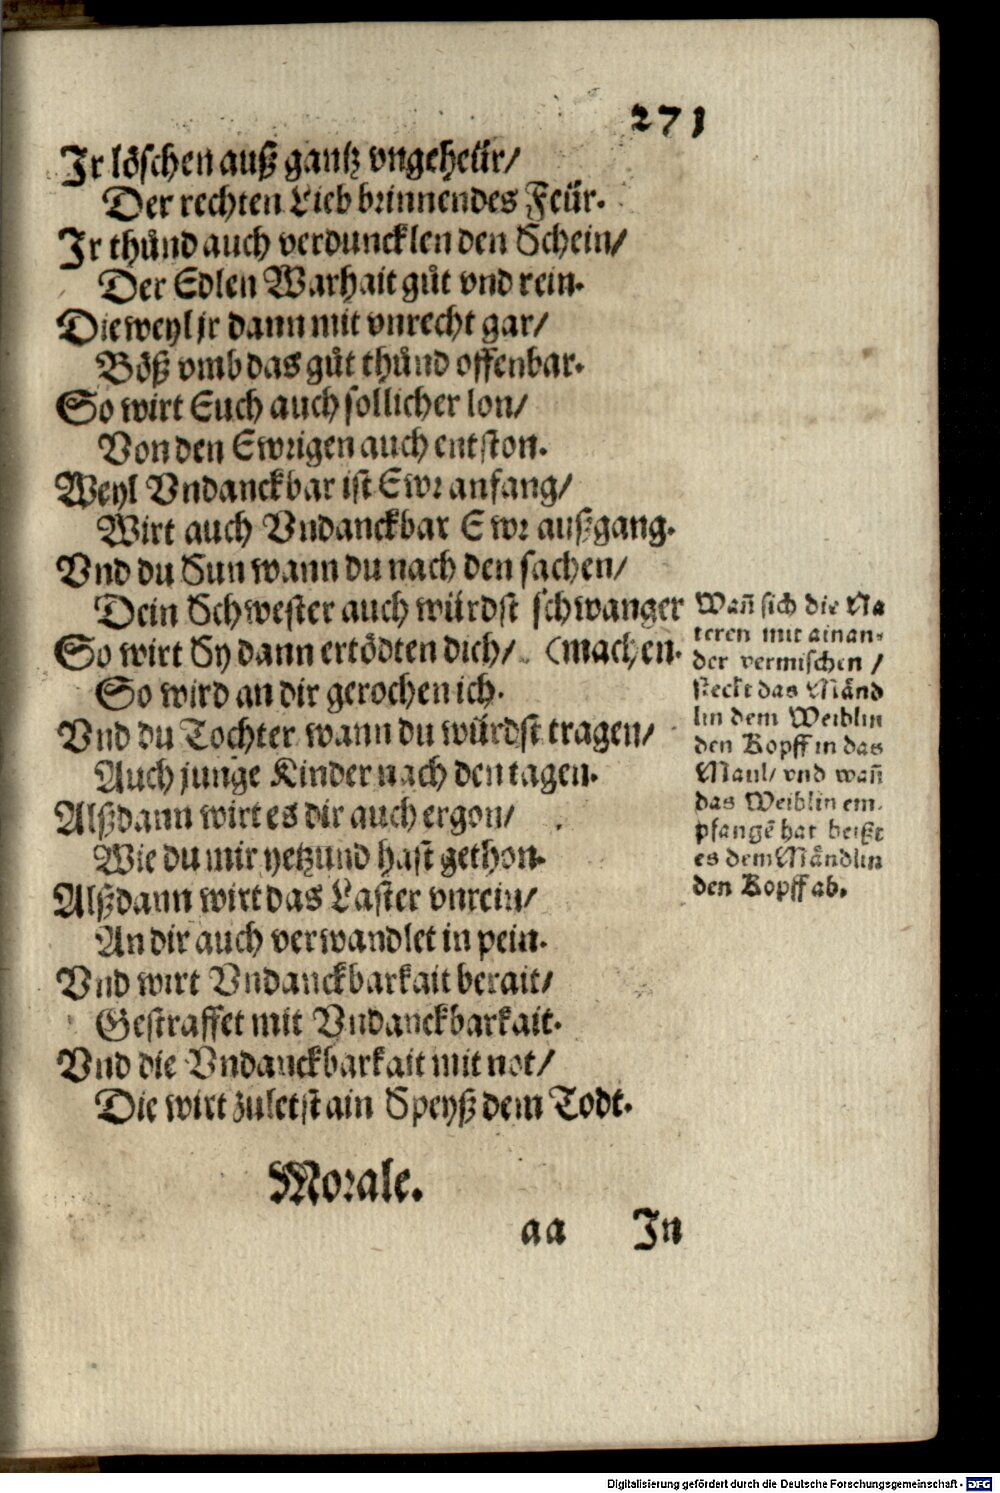 271
Jr löschen auß gantz vngeheür/
Der rechten Lieb brinnendes Feür.
Jr thůnd auch verduncklen den Schein/
Der Edlen Warhait gůt vnd rein.
Dieweyl jr dann mit vnrecht gar/
Böß vmb das gůt thůnd offenbar.
So wirt Euch auch sollicher lon/
Von den Ewrigen auch entston.
Weyl Vndanckbar ist Ewr anfang/
Wirt auch Vndanckbar Ewr außgang.
Vnd du Sun wann du nach den sachen/
Dein Schwester auch würdst schwanger
So wirt Sy dann ertödten dich/ (machen.
So wird an dir gerochen ich.
Vnd du Tochter wann du würdst tragen/
Auch junge Kinder nach den tagen.
Alßdann wirt es dir auch ergon/
Wie du mir yetzund hast gethon.
Alßdann wirt das Laster vnrein/
An dir auch verwandlet in pein.
Vnd wirt Vndanckbarkait berait/
Gestraffet mit Vndanckbarkait.
Vnd die Vndanckbarkait mit not/
Die wirt zuletst ain Speyß dem Todt.
Wañ sich die Na
teren mit ainan-
der vermischen /
steckt das Mänd
lin dem Weiblin
den Kopff in das
Maul/ vnd wañ
das Weiblin em-
pfangē hat beißt
es dem Mändlin
den Kopff ab.
Morale.
aa Jn
Digitalisierung gefördert durch die Deutsche Forschungsgemeinschaft - DFG